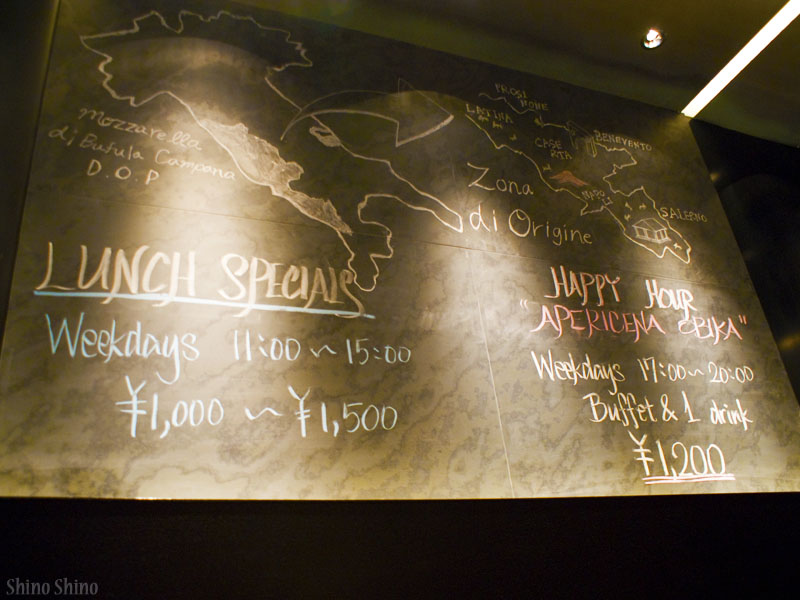 Mozzarella
di Bufula Campana
D.O.P
FROSI
NONE
LATINA
CASE
RTA
BENEVENTO
NAPOLI
SALERNO
Zona
di Origine
LUNCH SPECIALS
Weekdays 11:00~15:00
¥1,000 ~ ¥1,500
HAPPY HOUR
"APERICENA OBIKA"
Weekdays 17:00~20:00
Buffet & 1 drink
¥1,200
Shino Shino